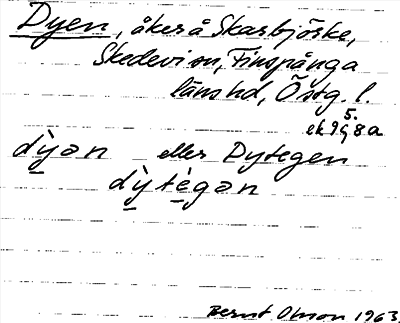 Dyen, åker å Skarbjörke,
Skedevi sn, Finspånga
läns hd, Östg. l.
5.
ek 9G8a
dỳ̠ən eller Dytegen
dỳ̠tè̠gən
Bernt Olson 1963.